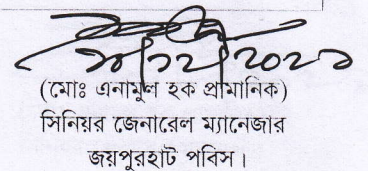 ২৮/১২/২০২১
(মোঃ এনামুল হক প্রামানিক)
সিনিয়র জেনারেল ম্যানেজার
জয়পুরহাট পবিস।